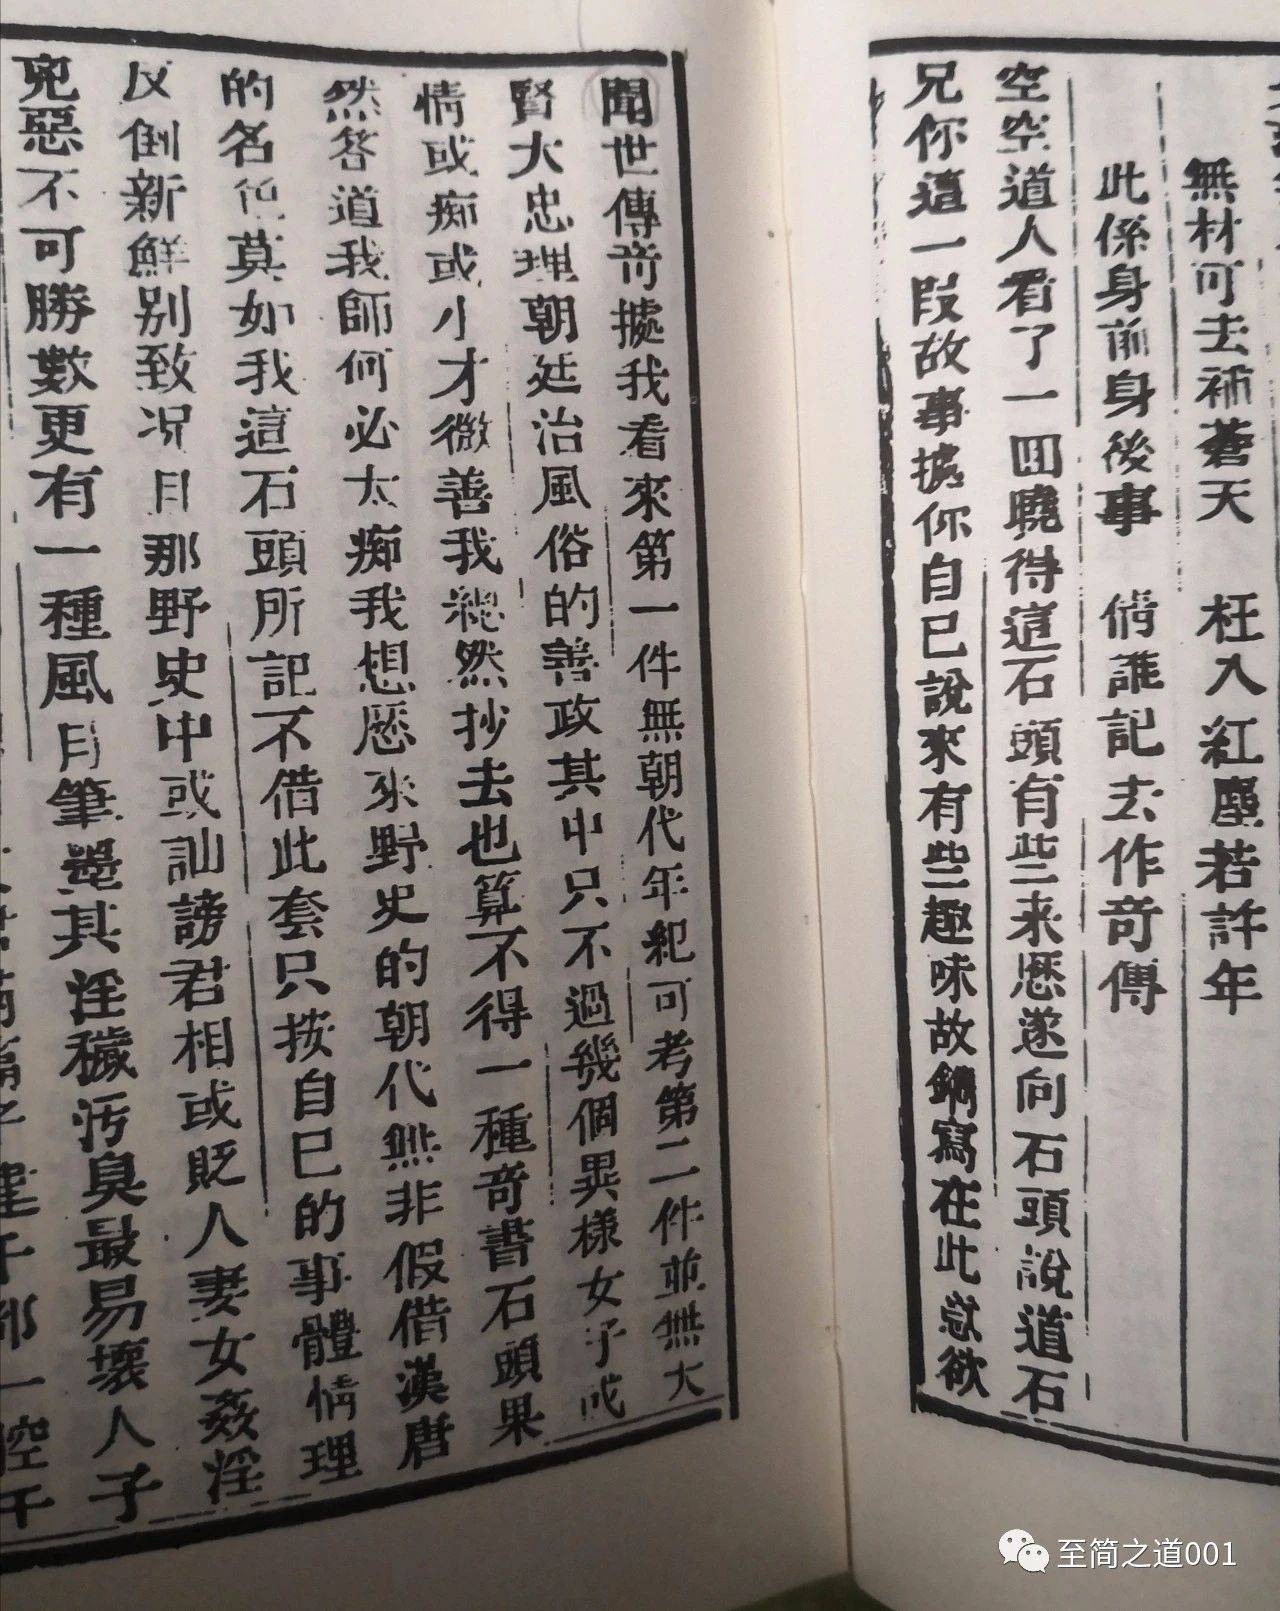 無材可去補蒼天　枉入紅塵若許年
此係身前身後事　倩誰記去作奇傳
空空道人看了一回曉得這石頭有些来歷遂向石頭說道石
兄你這一段故事據你自己說來有些趣味故鐫寫在此意欲
聞世傳奇據我看來第一件無朝代年紀可考第二件並無大
賢大忠理朝廷治風俗的善政其中只不過幾個異樣女子或
情或痴或小才微善我縂然抄去也算不得一種奇書石頭果
然答道我師何必太痴我想歷來野史的朝代無非假借漢唐
的名色莫如我這石頭所記不借此套只按自己的事體情理
反倒新鮮别致况且那野史中或訕謗君相或貶人妻女姦淫
兇惡不可勝數更有一種風月筆墨其淫穢汚臭最易壞人子
至简之道001